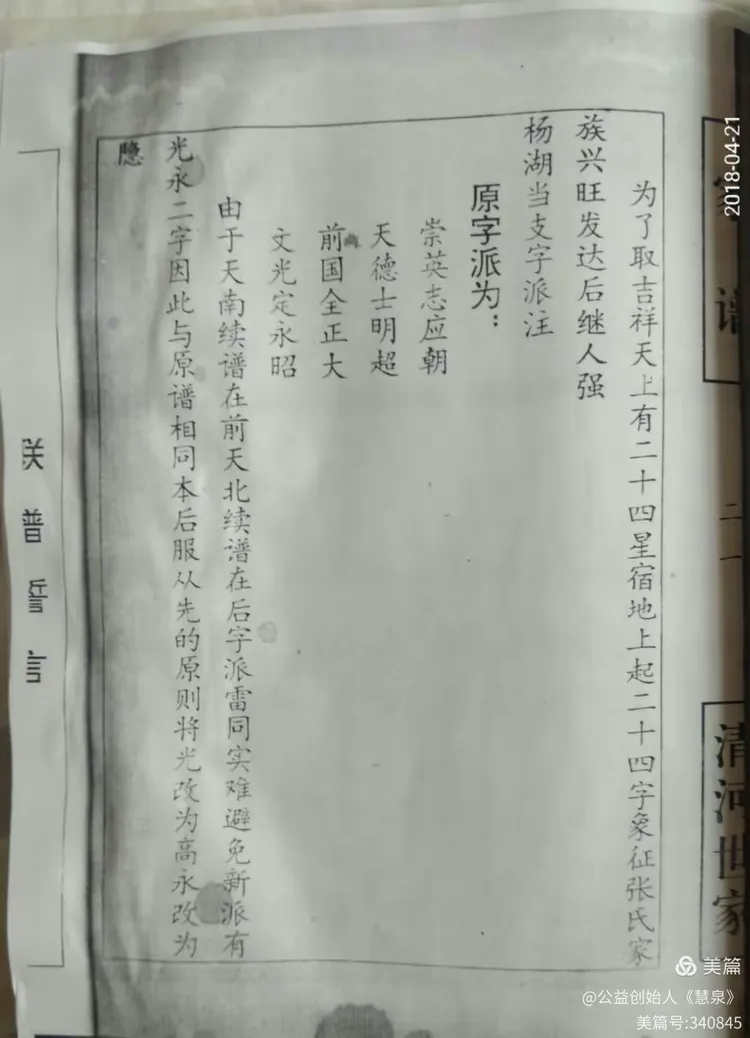 为了取吉祥天上有二十四星宿地上起二十四字象征张氏家
族兴旺发达后继人强
杨湖当支字派注
原字派为：
崇英志应朝
天德士明超
前国全正大
文光定永昭
由于天南续谱在前天北续谱在后字派雷同实难避免新派有
光永二字因此与原谱相同本后服从先的原则将光改为高永改为
隐
联普誓言
家谱
二一
清河世家
2018-04-21
美篇
@公益创始人《慧泉》
美篇号:340845